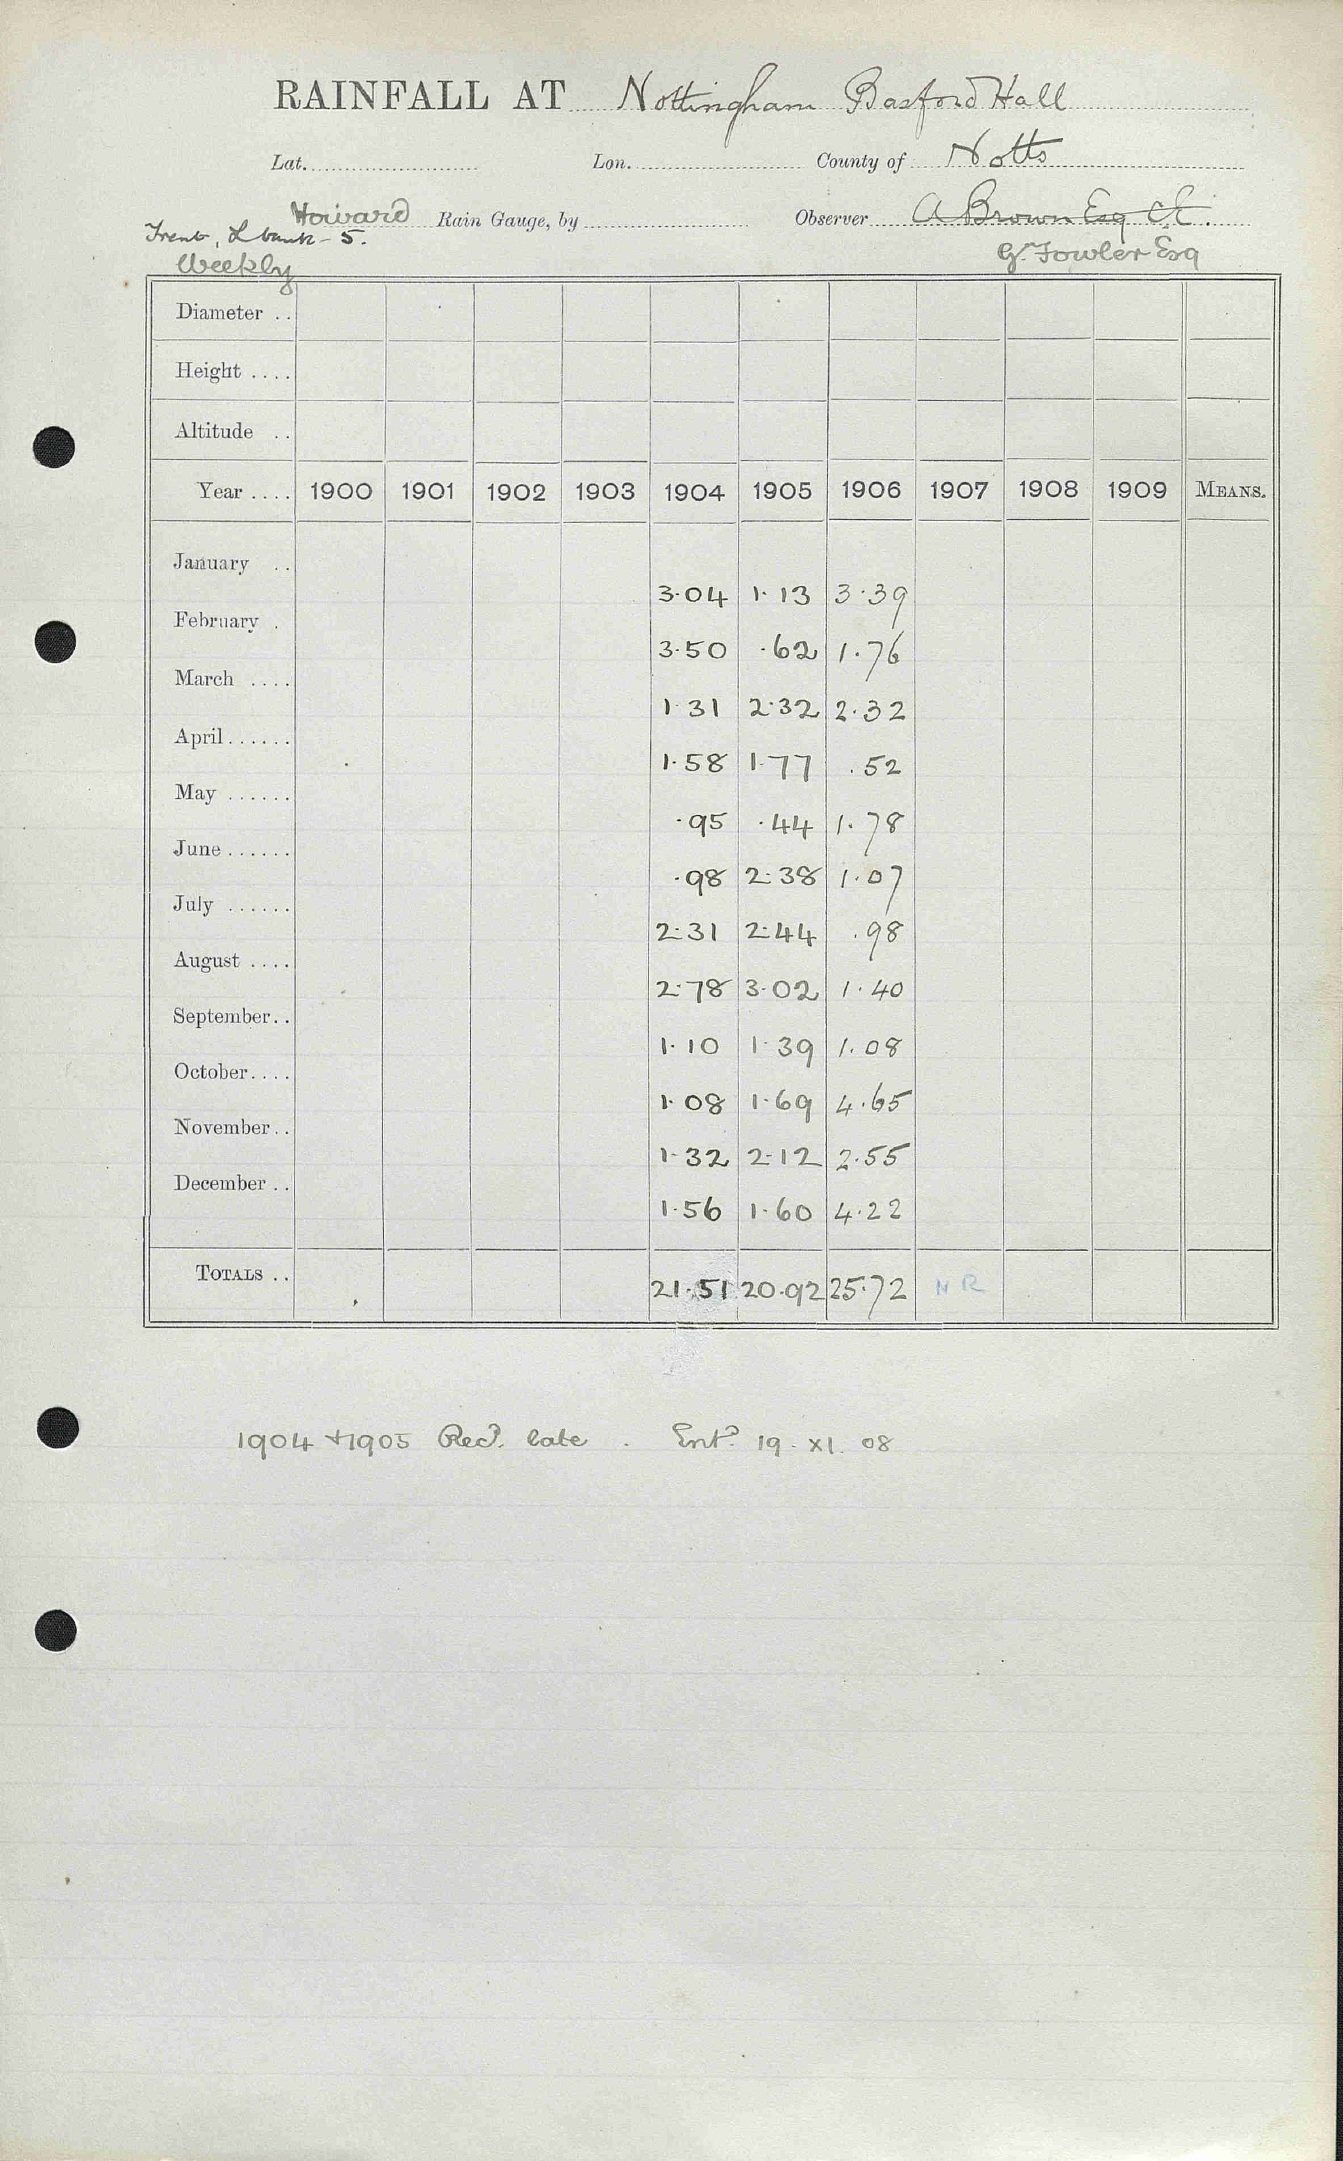 RAINFALL AT Nottingham Basford Hall
Lat. Lon. County of Notts
Howard Rain Gauge, by Observer A Brown Esq C.E.
Trent, L bank - 5. G. Fowler Esq
Weekly
Diameter ..
Height ....
Altitude ..
Year .... 1900 1901 1902 1903 1904 1905 1906 1907 1908 1909 MEANS.
January ..
3.04 1.13 3.39
February .
3.50 .62 1.76
March ....
1.31 2.32 2.32
April ......
1.58 1.77 .52
May ......
.95 .44 1.78
June ......
.98 2.38 1.07
July ......
2.31 2.44 .98
August ....
2.78 3.02 1.40
September..
1.10 1.39 1.08
October....
1.08 1.69 4.65
November..
1.32 2.12 2.55
December ..
1.56 1.60 4.22
TOTALS ..
21.51 20.92 25.72 NR
1904 + 1905 Recd. late . Entd. 19. XI. 08